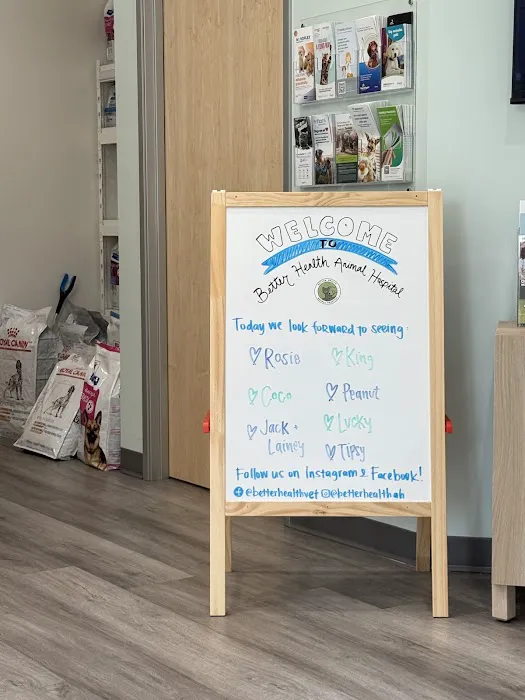 WELCOME
TO
Better Health Animal Hospital
Today we look forward to seeing:
Rosie
King
Coco
Peanut
Jack +
Lainey
Lucky
Tipsy
Follow us on Instagram & Facebook!
@betterhealthvet @betterhealthah
ROYAL CANIN
ROYAL CANIN